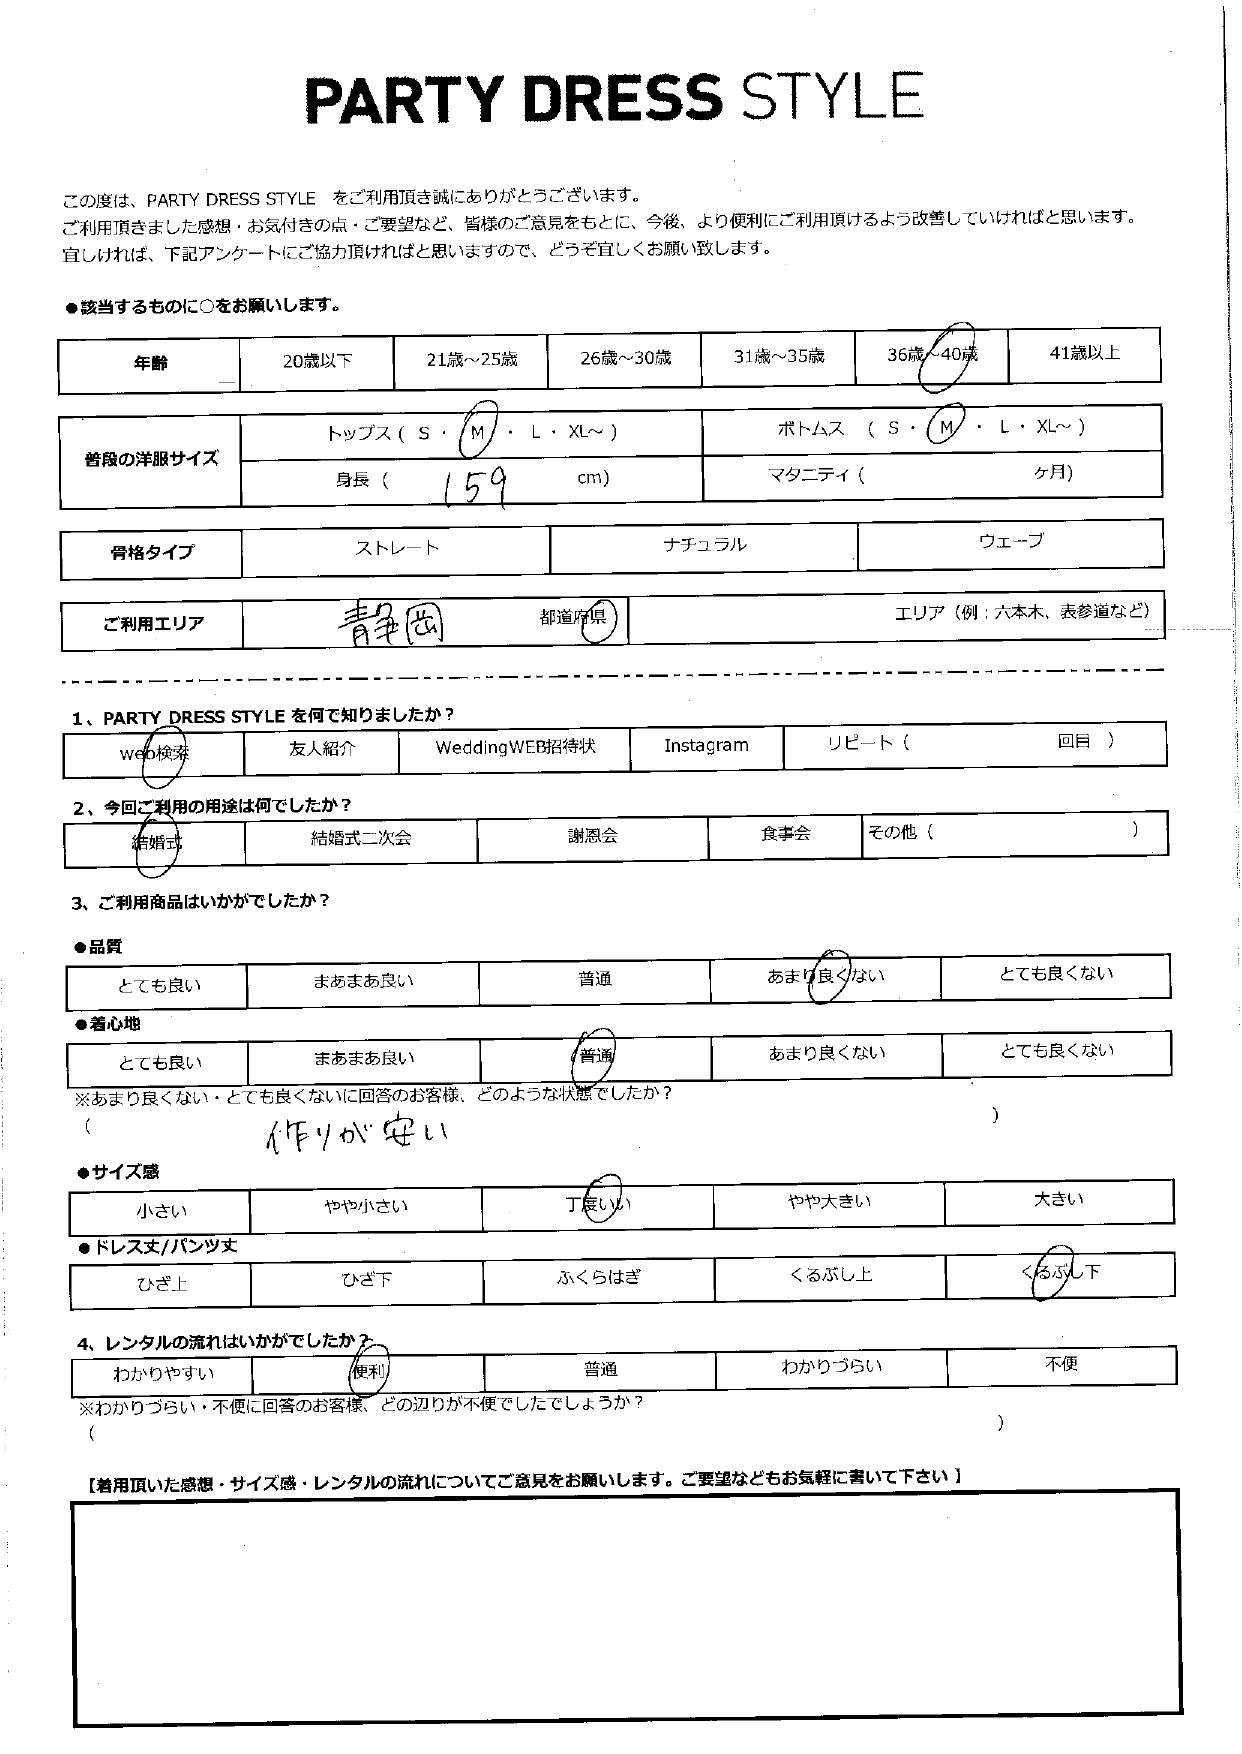 PARTY DRESS STYLE
この度は、PARTY DRESS STYLE をご利用頂き誠にありがとうございます。
ご利用頂きました感想・お気付きの点・ご要望など、皆様のご意見をもとに、今後、より便利にご利用頂けるよう改善していければと思います。
宜しければ、下記アンケートにご協力頂ければと思いますので、どうぞ宜しくお願い致します。
●該当するものに○をお願いします。
年齢 20歳以下 21歳～25歳 26歳～30歳 31歳～35歳 36歳～40歳 41歳以上
普段の洋服サイズ トップス ( S ・ M ・ L ・ XL～ ) ボトムス ( S ・ M ・ L ・ XL～ )
身長 ( 159 cm) マタニティ ( ヶ月)
骨格タイプ ストレート ナチュラル ウェーブ
ご利用エリア 静岡 都道府県 エリア（例：六本木、表参道など）
1、PARTY DRESS STYLE を何で知りましたか？
web検索 友人紹介 WeddingWEB招待状 Instagram リピート ( 回目 )
2、今回ご利用の用途は何でしたか？
結婚式 結婚式二次会 謝恩会 食事会 その他 ( )
3、ご利用商品はいかがでしたか？
●品質
とても良い まあまあ良い 普通 あまり良くない とても良くない
●着心地
とても良い まあまあ良い 普通 あまり良くない とても良くない
※あまり良くない・とても良くないに回答のお客様、どのような状態でしたか？
( 作りが安い )
●サイズ感
小さい やや小さい 丁度いい やや大きい 大きい
●ドレス丈/パンツ丈
ひざ上 ひざ下 ふくらはぎ くるぶし上 くるぶし下
4、レンタルの流れはいかがでしたか？
わかりやすい 便利 普通 わかりづらい 不便
※わかりづらい・不便に回答のお客様、どの辺りが不便でしたでしょうか？
( )
【着用頂いた感想・サイズ感・レンタルの流れについてご意見をお願いします。ご要望などもお気軽に書いて下さい】